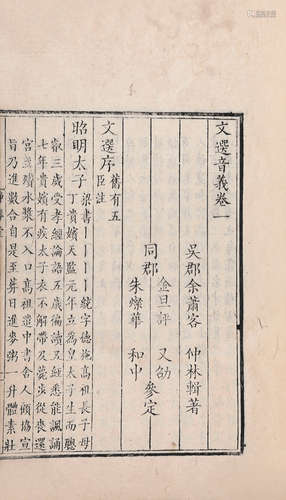 文選音義卷一
吳郡余蕭客 仲林輯著
金旦評 又劬
同郡 參定
朱燦華 和中
文選序 舊有五臣註
昭明太子 梁書丨丨丨丨統字德施高祖長子母
丁貴嬪天監元年立為皇太子生而聰
叡三歲受孝經論語五歲徧讀五經悉能諷誦
七年貴嬪有疾太子衣不解帶及薨步從喪還
宮至殯水漿不入口高祖遣中書舍人顧協宣
旨乃進數合自是至葬日進麥粥一升體素壯